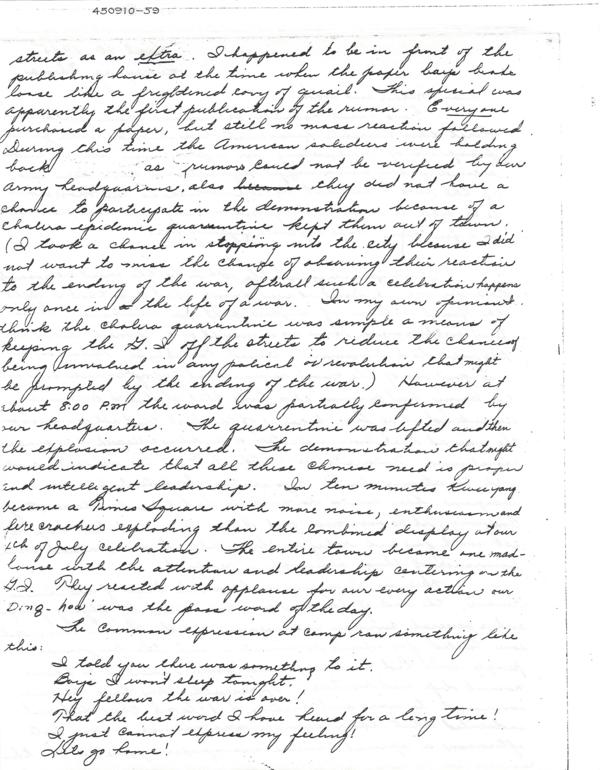 450910-59
streets as an extra. I happened to be in front of the
publishing house at the time when the paper boys broke
loose like a frightened covy of quail. This special was
apparently the first publication of the rumor. Everyone
purchased a paper, but still no mass reaction followed.
During this time the American soldiers were holding
back as rumors could not be verified by our
Army headquarters, also because they did not have a
chance to participate in the demonstration because of a
cholera epidemic quarantine kept them out of town.
(I took a chance in stopping into the city because I did
not want to miss the change of observing their reaction
to the ending of the war, afterall such a celebration happens
only once in the life of a war. In my own opinion I
think the cholera quarentine was simple a means of
keeping the G.I off the streets to reduce the chance of
being unvalued in any polical or revolution that might
be prompted by the ending of the war.) However at
about 8:00 P.M the word was partially confirmed by
our headquarters. The quarrentine was lifted and then
the explosion occurred. The demonstration that night
would indicate that all these Chinese need is proper
and intelligent leadership. In ten minutes Kweiyang
became a Times Square with more noise, enthusiasm and
fire crackers exploding than the combined display at our
4th of July celebration. The entire town became one mad-
house with the attention and leadership centering on the
G.I. They reacted with applause for our every action our
"Ding-how" was the pass word of the day.
The common expression at camp ran something like
this:
I told you there was something to it.
Boys I won't sleep tonight.
Hey fellows the war is over!
That the best word I have heard for a long time!
I just cannot express my feeling!
Lets go home!